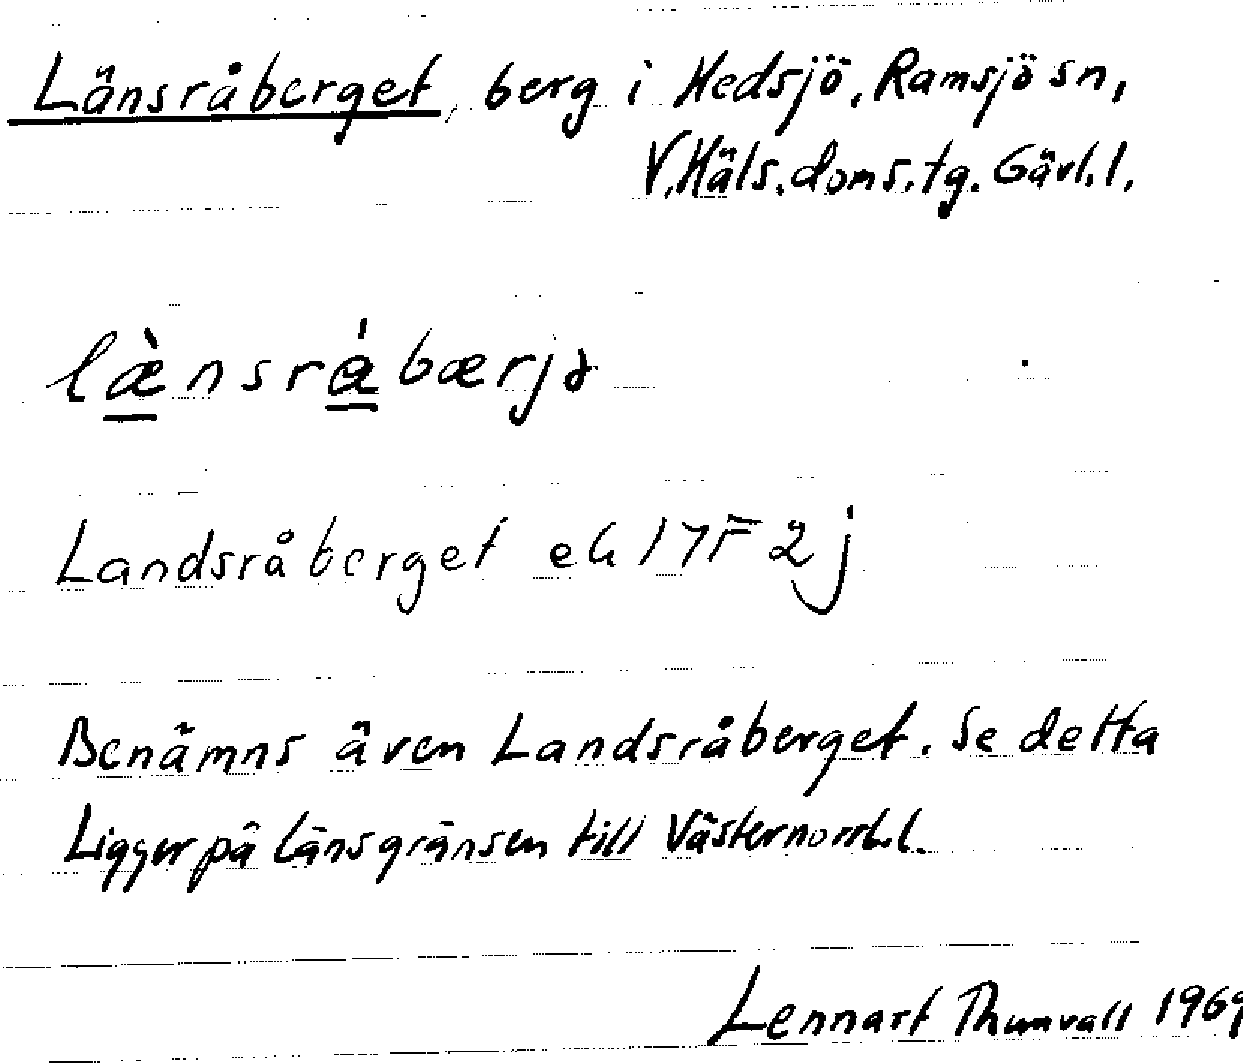 Länsråberget, berg i Hedsjö, Ramsjö sn,
V. Häls. doms. tg. Gävl. l.
læ̀nsrábærjə
Landsråberget ek 17F 2j
Benämns även Landsråberget. Se detta
Ligger på länsgränsen till Västernorrl. l.
Lennart Thunvall 1969